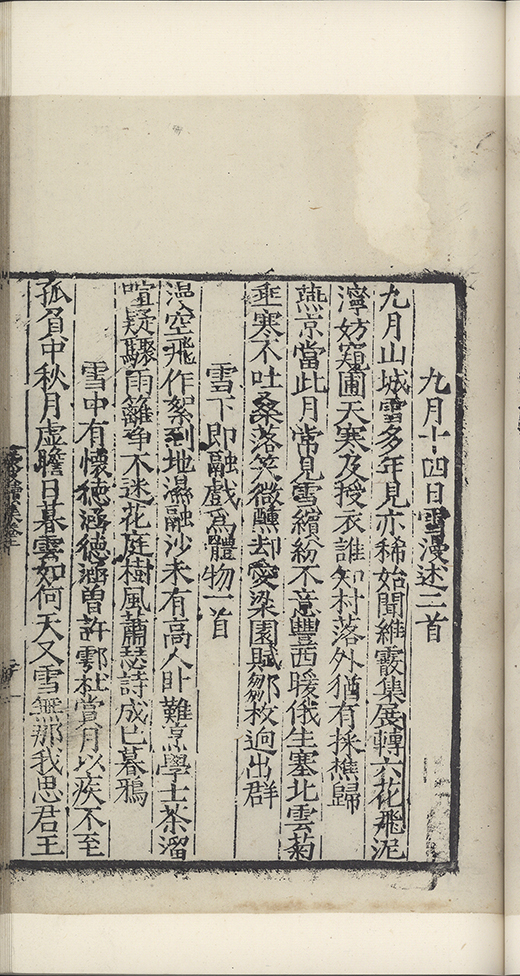 九月十四日雪漫述二首
九月山城雪多年見亦稀始聞維霰集展轉六花飛泥
濘妨窺圃天寒及授衣誰知村落外猶有採樵歸
燕京當此月常見雪繽紛不意豐西暖俄生塞北雲菊
垂寒不吐桑落笑微醺却愛梁園賦鄒枚迥出群
雪下即融戲爲體物一首
温空飛作絮到地濕融沙未有高人卧難烹學士茶溜
喧疑驟雨籬争不迷花庭樹風蕭瑟詩成已暮鴉
雪中有懷德涵德涵曾許鄠杜賞月以疾不至
孤負中秋月虚瞻日暮雲如何天又雪無那我思君王